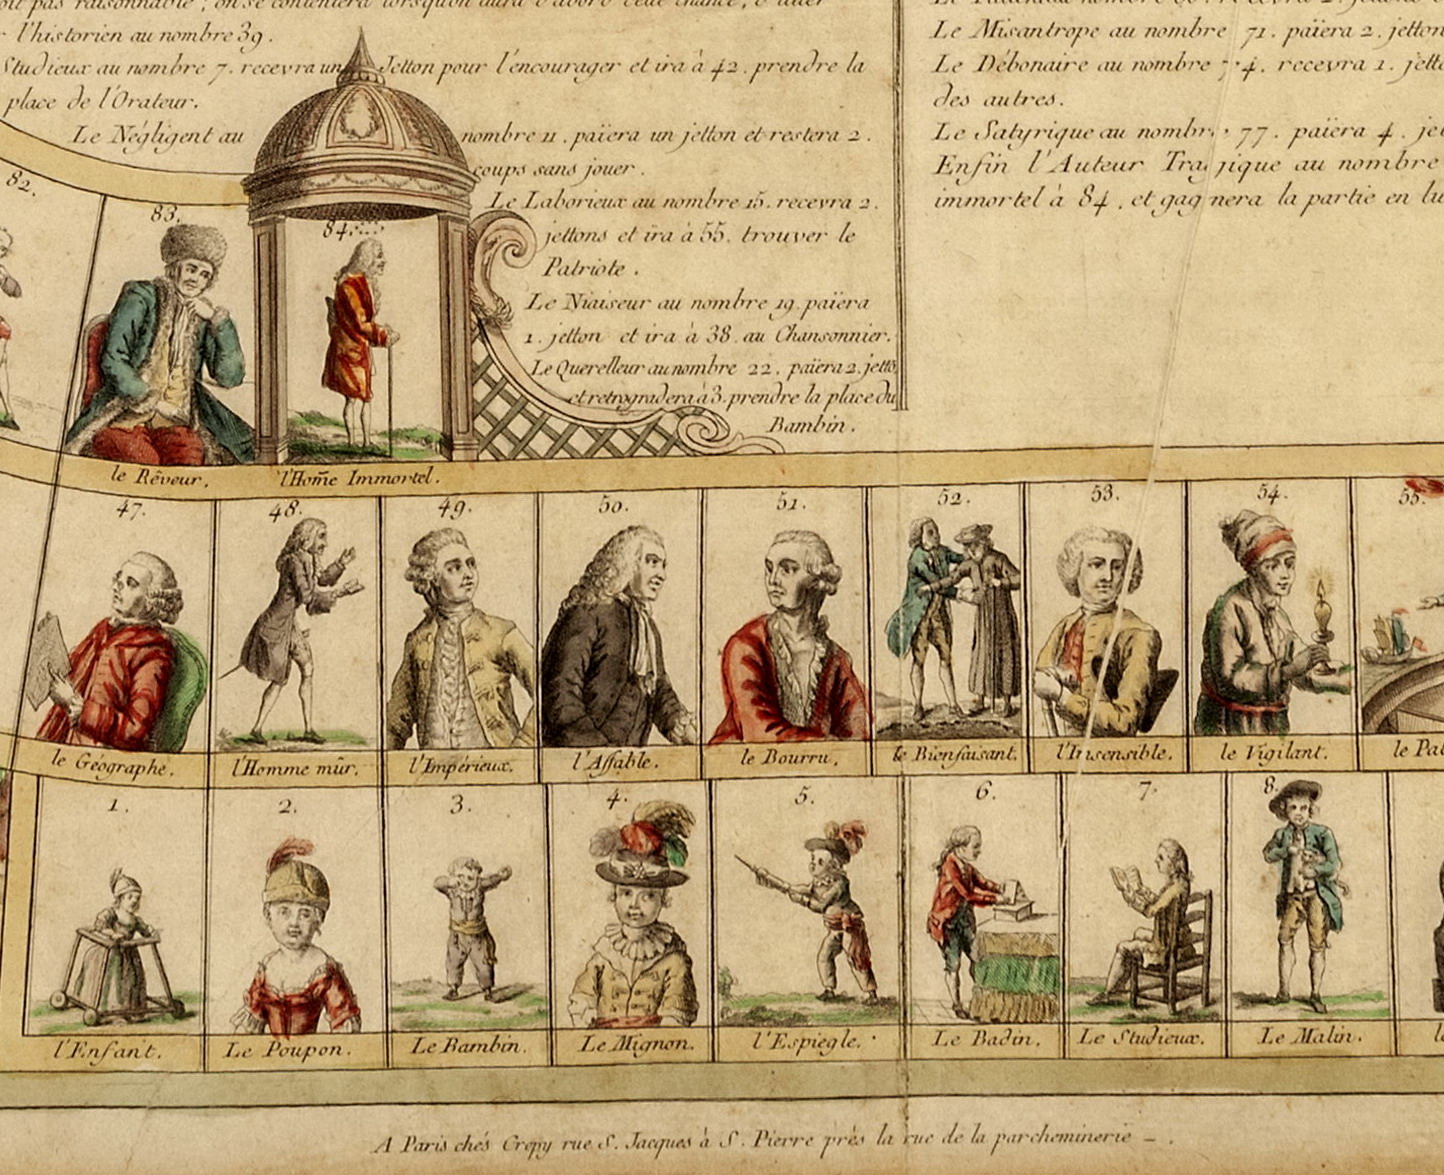 soit pas raisonnable ; on se contentera lorsqu'on aura d'abord cette chance, d'aller
l'historien au nombre 39.
Studieux au nombre 7. recevra un Jetton pour l'encourager et ira à 42. prendre la
place de l'Orateur.
Le Négligent au nombre 11. païera un jetton et restera 2.
coups sans jouer.
Le Laborieux au nombre 15. recevra 2.
jettons et ira à 55. trouver le
Patriote.
Le Niaiseur au nombre 19. païera
1. jetton et ira à 38. au Chansonnier.
Le Querelleur au nombre 22. païera 2. jetto
et retrogradera à 3. prendre la place du
Bambin.
Le Misantrope au nombre 71. païera 2. jetton
Le Débonaire au nombre 74. recevra 1. jett
des autres.
Le Satyrique au nombre 77. païera 4. je
Enfin l'Auteur Tragique au nombre
immortel à 84, et gagnera la partie en lu
82.
83.
84.
le Rêveur.
l'Hom̃e Immortel.
47.
48.
49.
50.
51.
52.
53.
54.
55.
le Géographe.
l'Homme mûr.
l'Impérieux.
l'Affable.
le Bourru.
le Bienfaisant.
l'Insensible.
le Vigilant.
le Pa
1.
2.
3.
4.
5.
6.
7.
8.
l'Enfant.
Le Poupon.
Le Bambin.
Le Mignon.
l'Espiegle.
Le Badin.
Le Studieux.
Le Malin.
A Paris chés Crepy rue S. Jacques à S. Pierre près la rue de la parcheminerie